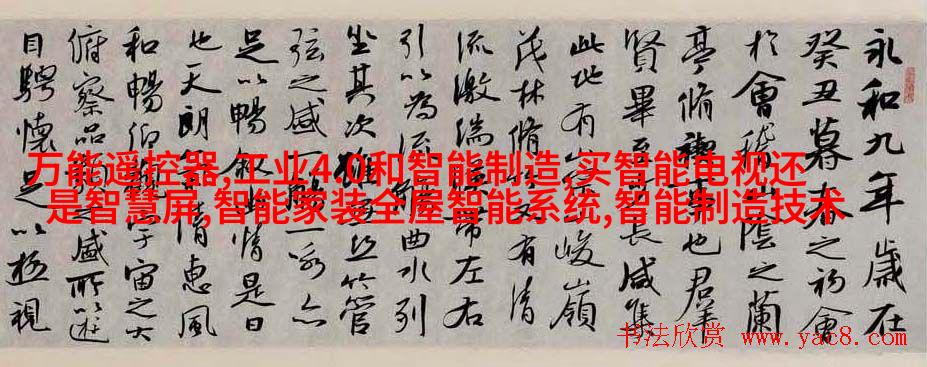 永和九年歲在
癸丑暮春之初會
於會稽山陰之蘭
亭脩禊事也群
賢畢至少長咸集
此地有崇山峻嶺
茂林脩竹又有清
流激湍映帶左右
引以為流觴曲水列
坐其次雖無絲竹管
弦之盛一觴一詠亦
足以暢敘幽情是日
也天朗氣清惠風
和暢仰觀宇宙之大
俯察品類之盛所以遊
目騁懷足以極視
万能遥控器,工业4.0和智能制造,买智能电视还
是智慧屏,智能家装全屋智能系统,智能制造技术
书法欣赏 www.yac8.com